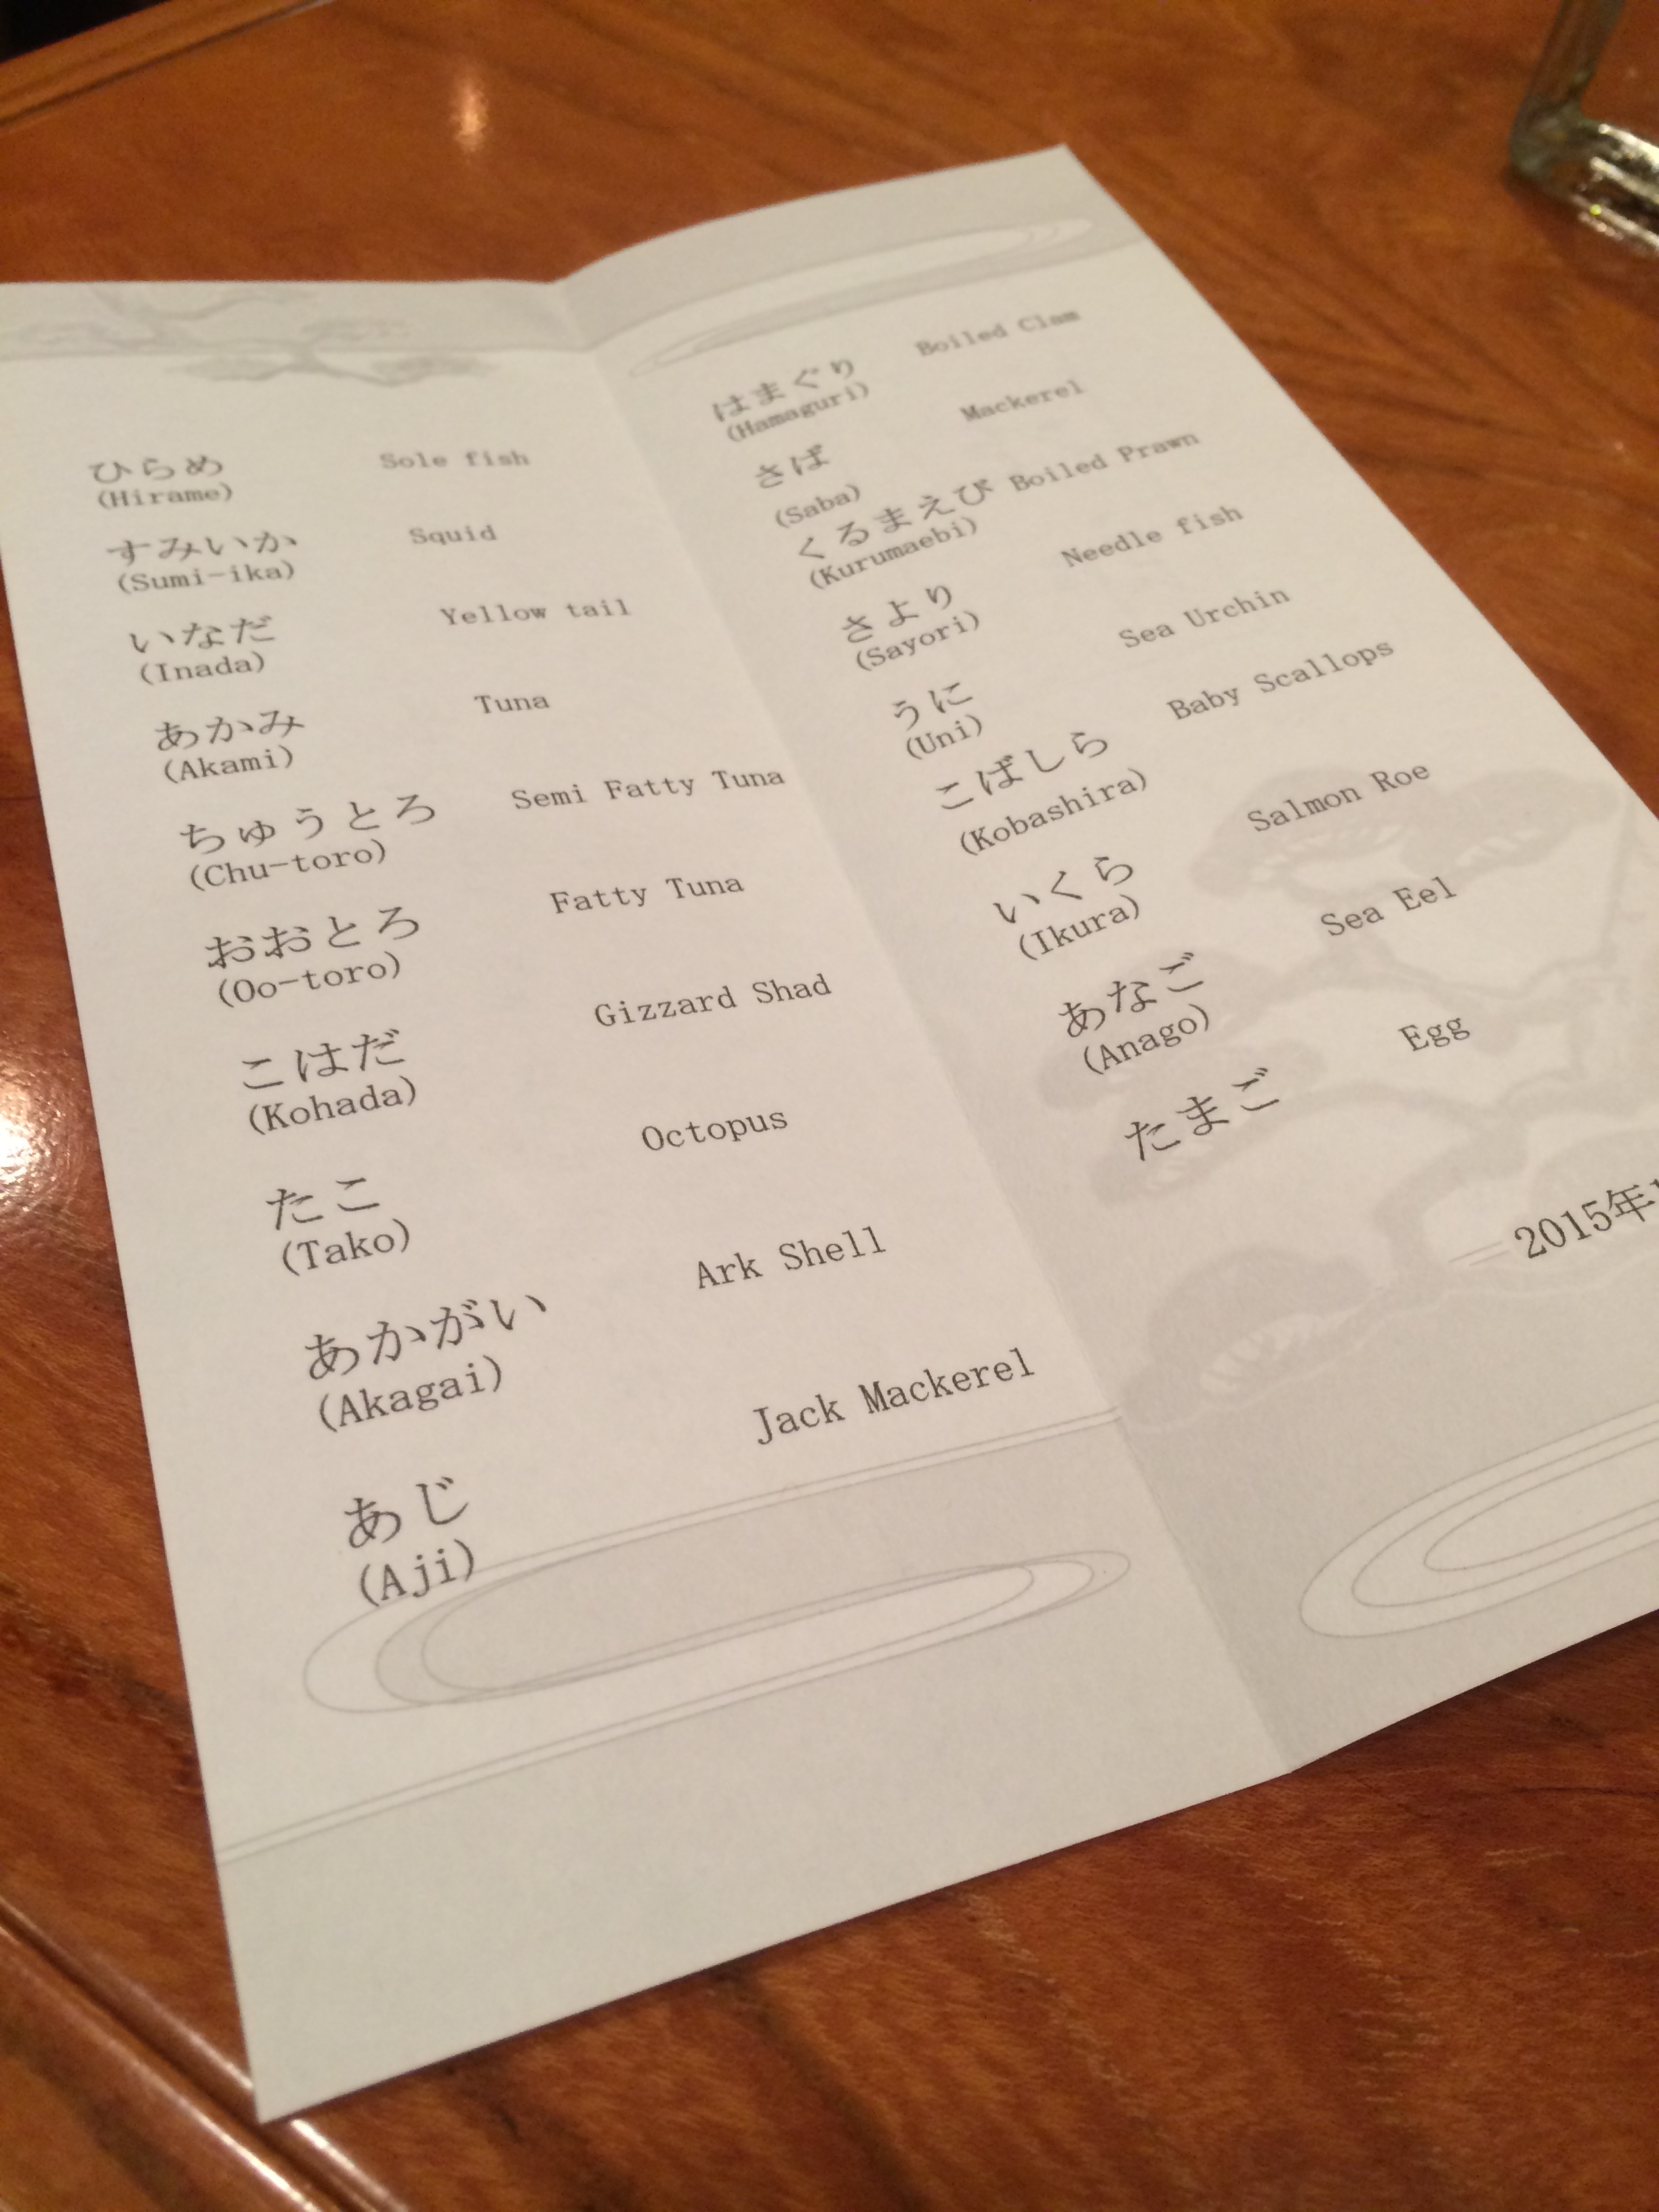 ひらめ Sole fish
(Hirame)
すみいか Squid
(Sumi-ika)
いなだ Yellow tail
(Inada)
あかみ Tuna
(Akami)
ちゅうとろ Semi Fatty Tuna
(Chu-toro)
おおとろ Fatty Tuna
(Oo-toro)
こはだ Gizzard Shad
(Kohada)
たこ Octopus
(Tako)
あかがい Ark Shell
(Akagai)
あじ Jack Mackerel
(Aji)
はまぐり Boiled Clam
(Hamaguri)
さば Mackerel
(Saba)
くるまえび Boiled Prawn
(Kurumaebi)
さより Needle fish
(Sayori)
うに Sea Urchin
(Uni)
こばしら Baby Scallops
(Kobashira)
いくら Salmon Roe
(Ikura)
あなご Sea Eel
(Anago)
たまご Egg
2015年